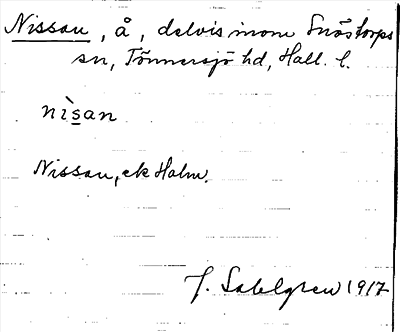 Nissan, å, delvis inom Snöstorps
sn, Tönnersjö hd, Hall. l.
nìsan
Nissan, ek Halm.
J. Sahlgren 1917